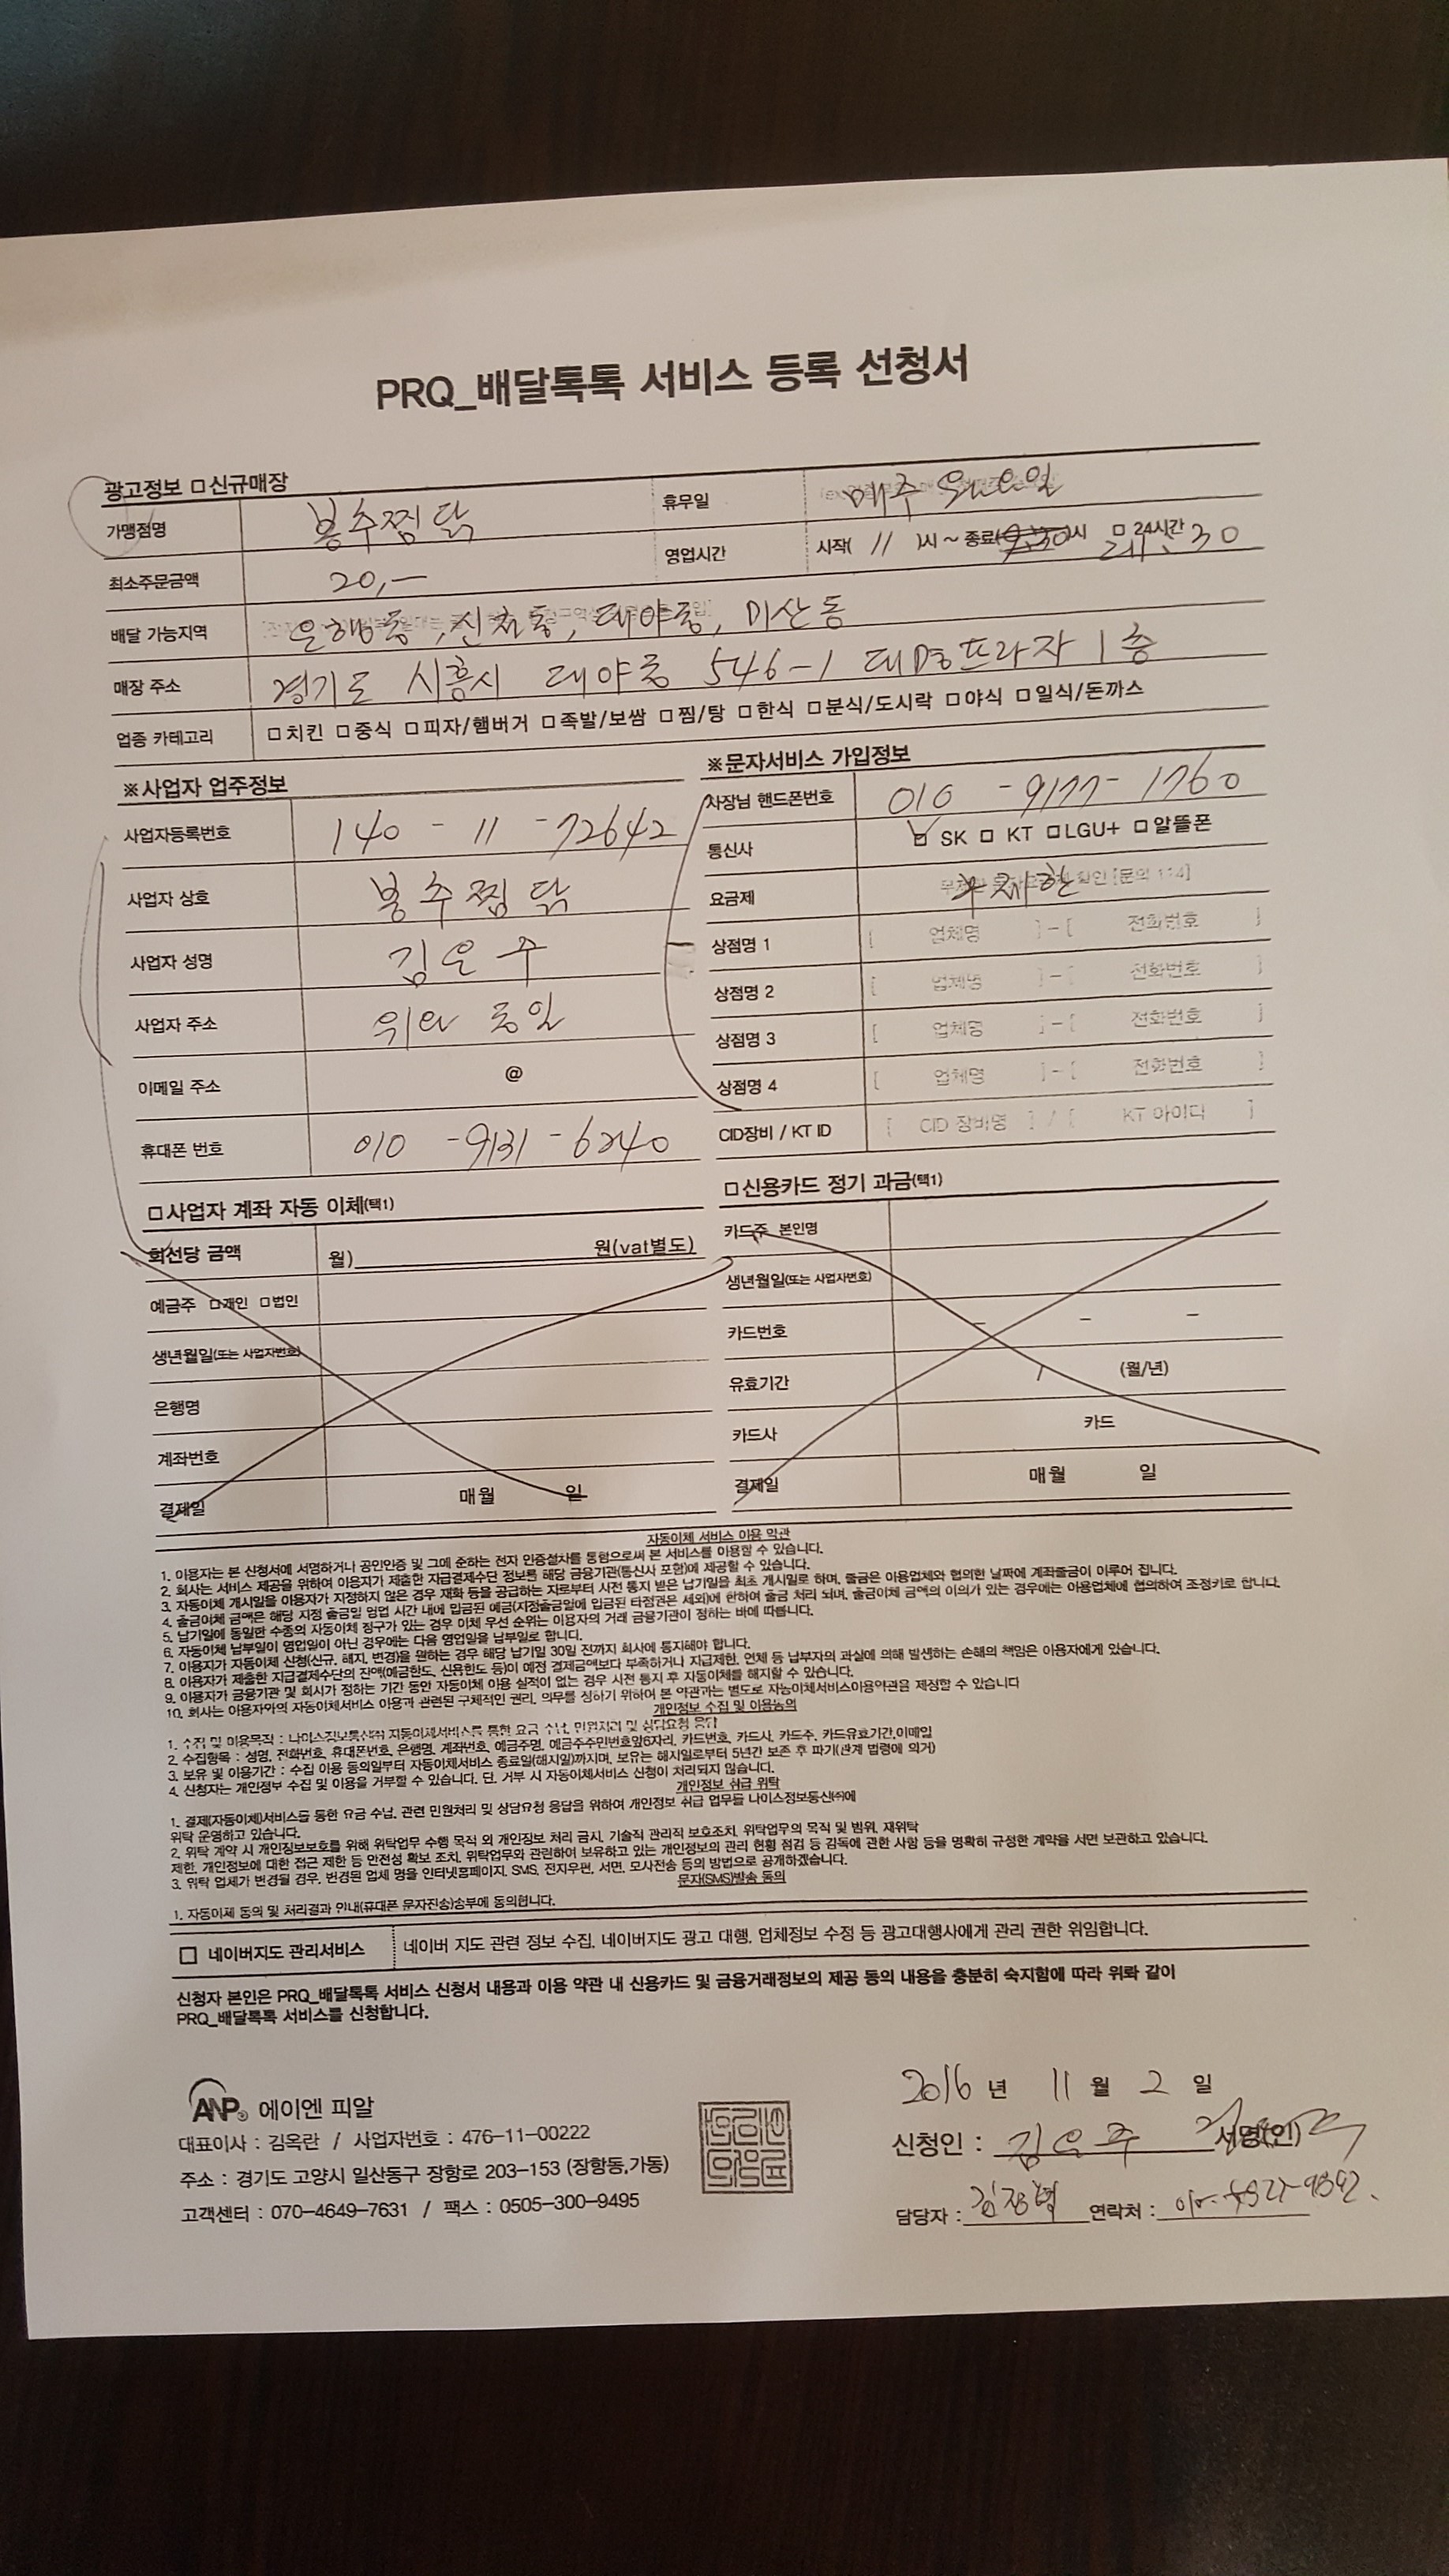 PRQ_배달톡톡 서비스 등록 신청서
광고정보 □신규매장
가맹점명 봉추찜닭 휴무일 매주 월요일
최소주문금액 20,— 영업시간 시작( 11 )시 ~ 종료( )시 □ 24시간 21:30
배달 가능지역 은행동, 신천동, 대야동, 미산동
매장 주소 경기도 시흥시 대야동 546-1 대명프라자 1층
업종 카테고리 □치킨 □중식 □피자/햄버거 □족발/보쌈 □찜/탕 □한식 □분식/도시락 □야식 □일식/돈까스
※사업자 업주정보
사업자등록번호 140 - 11 - 72642
사업자 상호 봉추찜닭
사업자 성명 김은주
사업자 주소 위와 동일
이메일 주소 @
휴대폰 번호 010 - 9131 - 6240
※문자서비스 가입정보
사장님 핸드폰번호 010 - 9177 - 1760
통신사 ☑ SK □ KT □LGU+ □알뜰폰
요금제 무제한 확인 [문의 114]
상점명 1 [ 업체명 ] - [ 전화번호 ]
상점명 2 [ 업체명 ] - [ 전화번호 ]
상점명 3 [ 업체명 ] - [ 전화번호 ]
상점명 4 [ 업체명 ] - [ 전화번호 ]
CID장비 / KT ID [ CID 장비명 ] / [ KT 아이디 ]
□사업자 계좌 자동 이체(택1)
회선당 금액 월) 원(vat별도)
예금주 □개인 □법인
생년월일(또는 사업자번호)
은행명
계좌번호
결제일 매월 일
□신용카드 정기 과금(택1)
카드주 본인명
생년월일(또는 사업자번호)
카드번호 - - -
유효기간 / (월/년)
카드사 카드
결제일 매월 일
자동이체 서비스 이용 약관
1. 이용자는 본 신청서에 서명하거나 공인인증 및 그에 준하는 전자 인증절차를 통함으로써 본 서비스를 이용할 수 있습니다.
2. 회사는 서비스 제공을 위하여 이용자가 제출한 지급결제수단 정보를 해당 금융기관(통신사 포함)에 제공할 수 있습니다.
3. 자동이체 개시일을 이용자가 지정하지 않은 경우 재화 등을 공급하는 자로부터 사전 통지 받은 납기일을 최초 개시일로 하며, 출금은 이용업체와 협의한 날짜에 계좌출금이 이루어 집니다.
4. 출금이체 금액은 해당 지정 출금일 영업 시간 내에 입금된 예금(지정출금일에 입금된 타점권은 제외)에 한하여 출금 처리 되며, 출금이체 금액의 이의가 있는 경우에는 이용업체에 협의하여 조정키로 합니다.
5. 납기일에 동일한 수종의 자동이체 청구가 있는 경우 이체 우선 순위는 이용자의 거래 금융기관이 정하는 바에 따릅니다.
6. 자동이체 납부일이 영업일이 아닌 경우에는 다음 영업일을 납부일로 합니다.
7. 이용자가 자동이체 신청(신규, 해지, 변경)을 원하는 경우 해당 납기일 30일 전까지 회사에 통지해야 합니다.
8. 이용자가 제출한 지급결제수단의 잔액(예금한도, 신용한도 등)이 예정 결제금액보다 부족하거나 지급제한, 연체 등 납부자의 과실에 의해 발생하는 손해의 책임은 이용자에게 있습니다.
9. 이용자가 금융기관 및 회사가 정하는 기간 동안 자동이체 이용 실적이 없는 경우 사전 통지 후 자동이체를 해지할 수 있습니다.
10. 회사는 이용자와의 자동이체서비스 이용과 관련된 구체적인 권리, 의무를 정하기 위하여 본 약관과는 별도로 자동이체서비스이용약관을 제정할 수 있습니다
개인정보 수집 및 이용동의
1. 수집 및 이용목적 : 나이스정보통신㈜ 자동이체서비스를 통한 요금 수납, 민원처리 및 상담요청 응답
2. 수집항목 : 성명, 전화번호, 휴대폰번호, 은행명, 계좌번호, 예금주명, 예금주주민번호앞6자리, 카드번호, 카드사, 카드주, 카드유효기간,이메일
3. 보유 및 이용기간 : 수집 이용 동의일부터 자동이체서비스 종료일(해지일)까지며, 보유는 해지일로부터 5년간 보존 후 파기(관계 법령에 의거)
4. 신청자는 개인정보 수집 및 이용을 거부할 수 있습니다. 단, 거부 시 자동이체서비스 신청이 처리되지 않습니다.
개인정보 취급 위탁
1. 결제(자동이체)서비스를 통한 요금 수납, 관련 민원처리 및 상담요청 응답을 위하여 개인정보 취급 업무를 나이스정보통신㈜에
위탁 운영하고 있습니다.
2. 위탁 계약 시 개인정보보호를 위해 위탁업무 수행 목적 외 개인정보 처리 금지, 기술적 관리적 보호조치, 위탁업무의 목적 및 범위, 재위탁
제한, 개인정보에 대한 접근 제한 등 안전성 확보 조치, 위탁업무와 관련하여 보유하고 있는 개인정보의 관리 현황 점검 등 감독에 관한 사항 등을 명확히 규정한 계약을 서면 보관하고 있습니다.
3. 위탁 업체가 변경될 경우, 변경된 업체 명을 인터넷홈페이지, SMS, 전자우편, 서면, 모사전송 등의 방법으로 공개하겠습니다.
문자(SMS)발송 동의
1. 자동이체 동의 및 처리결과 안내(휴대폰 문자전송)송부에 동의합니다.
□ 네이버지도 관리서비스 네이버 지도 관련 정보 수집, 네이버지도 광고 대행, 업체정보 수정 등 광고대행사에게 관리 권한 위임합니다.
신청자 본인은 PRQ_배달톡톡 서비스 신청서 내용과 이용 약관 내 신용카드 및 금융거래정보의 제공 동의 내용을 충분히 숙지함에 따라 위와 같이
PRQ_배달톡톡 서비스를 신청합니다.
2016 년 11 월 2 일
신청인 : 김은주 서명(인)
담당자 : 김정혁 연락처 :
ANP 에이엔 피알
대표이사 : 김옥란 / 사업자번호 : 476-11-00222
주소 : 경기도 고양시 일산동구 장항로 203-153 (장항동,가동)
고객센터 : 070-4649-7631 / 팩스 : 0505-300-9495